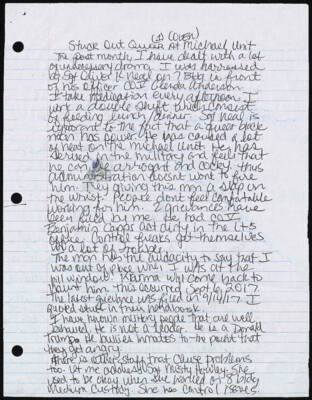 (J) Coven
Stuck Out Queen At Michael Unit
The past month, I have dealt with a lot
of unnecessary drama. I was harressed
by Sgt Oliver K. Neal on 7 Bldg in front
of his officer COI Glenda Anderson.
I take medication every afternoon. I
work a double shift which consist
of feeding lunch/dinner. Sgt Neal is
ignorant to the fact that a queer black
man has power. He was caused a lot
of heat on the Michael Unit. He has
served in the military and feels that
he can be arrogant and cocky. This
administration doesn't want to fire
him. They giving this man a slap on
the wrist. People don't feel comfortable
working with him. 2 grievances have
been filed by me. He had CO V
Benjamin Capps act dirty in the
office. Control freaks get themselves
in a lot of trouble.
The man has the audacity to say that I
was out of place when I was at the
pill window. Karma will come back to
haunt him. This occurred Sept 6, 2017.
The latest grievance was filed on 9/14/17. I
quoted stuff in their handbook.
I have known military people that are well
behaved. He is not a leader. He is a Donald
Trump. He bullies inmates to the point that
they get angry.
There is other staff that cause problems
too. Let me address Sgt Misty Howley. She
used to be okay when she worked on 8 bldg
Medium Custody. She has control issues.